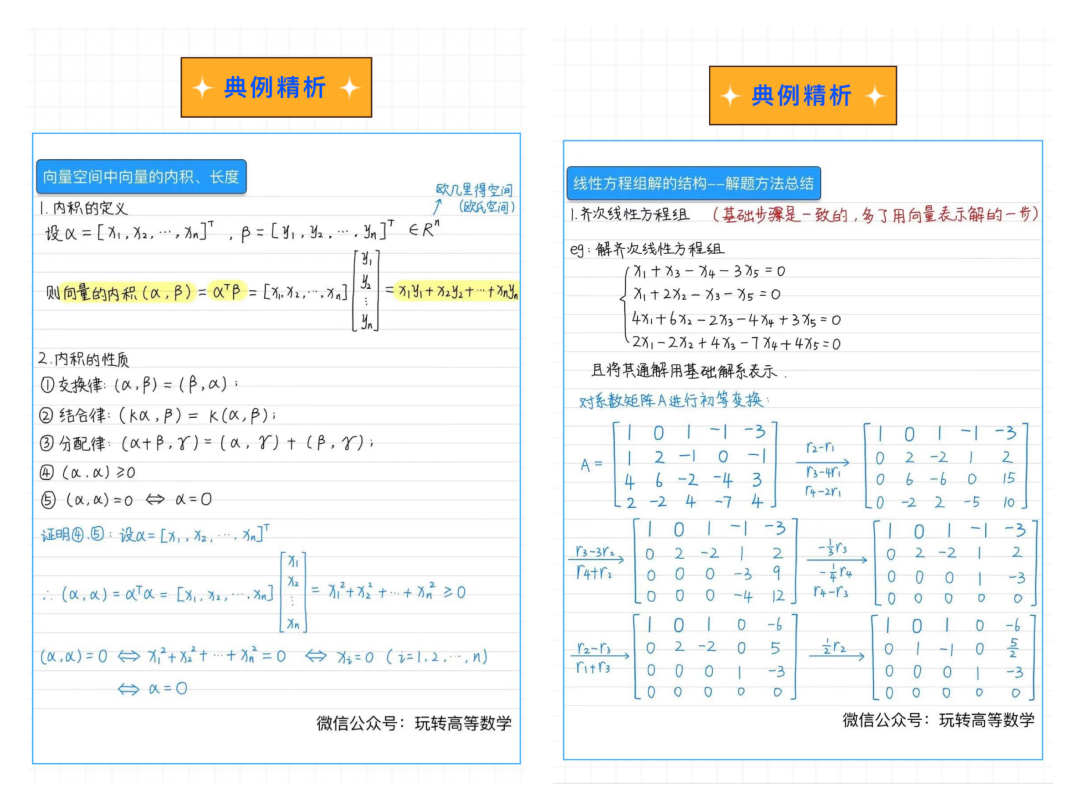 典例精析
向量空间中向量的内积、长度
欧几里得空间
(欧氏空间)
1. 内积的定义
设 α = [x₁, x₂, ⋯, xₙ]ᵀ , β = [y₁, y₂, ⋯, yₙ]ᵀ ∈ Rⁿ
则向量的内积 (α, β) = αᵀβ = [x₁, x₂, ⋯, xₙ] [y₁ y₂ ⋮ yₙ] = x₁y₁ + x₂y₂ + ⋯ + xₙyₙ
2. 内积的性质
① 交换律: (α, β) = (β, α) ;
② 结合律: (kα, β) = k(α, β);
③ 分配律: (α+β, γ) = (α, γ) + (β, γ);
④ (α, α) ≥ 0
⑤ (α, α) = 0 ⟺ α = 0
证明④.⑤: 设α = [x₁, x₂, ⋯, xₙ]ᵀ
∴ (α, α) = αᵀα = [x₁, x₂, ⋯, xₙ] [x₁ x₂ ⋮ xₙ] = x₁² + x₂² + ⋯ + xₙ² ≥ 0
(α, α) = 0 ⟺ x₁² + x₂² + ⋯ + xₙ² = 0 ⟺ xᵢ = 0 (i=1, 2, ⋯, n)
⟺ α = 0
微信公众号：玩转高等数学
典例精析
线性方程组解的结构--解题方法总结
1. 齐次线性方程组 (基础步骤是一致的, 多了用向量表示解的一步)
eg: 解齐次线性方程组
x₁ + x₃ - x₄ - 3x₅ = 0
x₁ + 2x₂ - x₃ - x₅ = 0
4x₁ + 6x₂ - 2x₃ - 4x₄ + 3x₅ = 0
2x₁ - 2x₂ + 4x₃ - 7x₄ + 4x₅ = 0
且将其通解用基础解系表示.
对系数矩阵A进行初等变换:
A = [1 0 1 -1 -3
1 2 -1 0 -1
4 6 -2 -4 3
2 -2 4 -7 4]
r₂-r₁
r₃-4r₁
r₄-2r₁
[1 0 1 -1 -3
0 2 -2 1 2
0 6 -6 0 15
0 -2 2 -5 10]
r₃-3r₂
r₄+r₂
[1 0 1 -1 -3
0 2 -2 1 2
0 0 0 -3 9
0 0 0 -4 12]
-⅓r₃
-¼r₄
r₄-r₃
[1 0 1 -1 -3
0 2 -2 1 2
0 0 0 1 -3
0 0 0 0 0]
r₂-r₃
r₁+r₃
[1 0 1 0 -6
0 2 -2 0 5
0 0 0 1 -3
0 0 0 0 0]
½r₂
[1 0 1 0 -6
0 1 -1 0 5/2
0 0 0 1 -3
0 0 0 0 0]
微信公众号：玩转高等数学